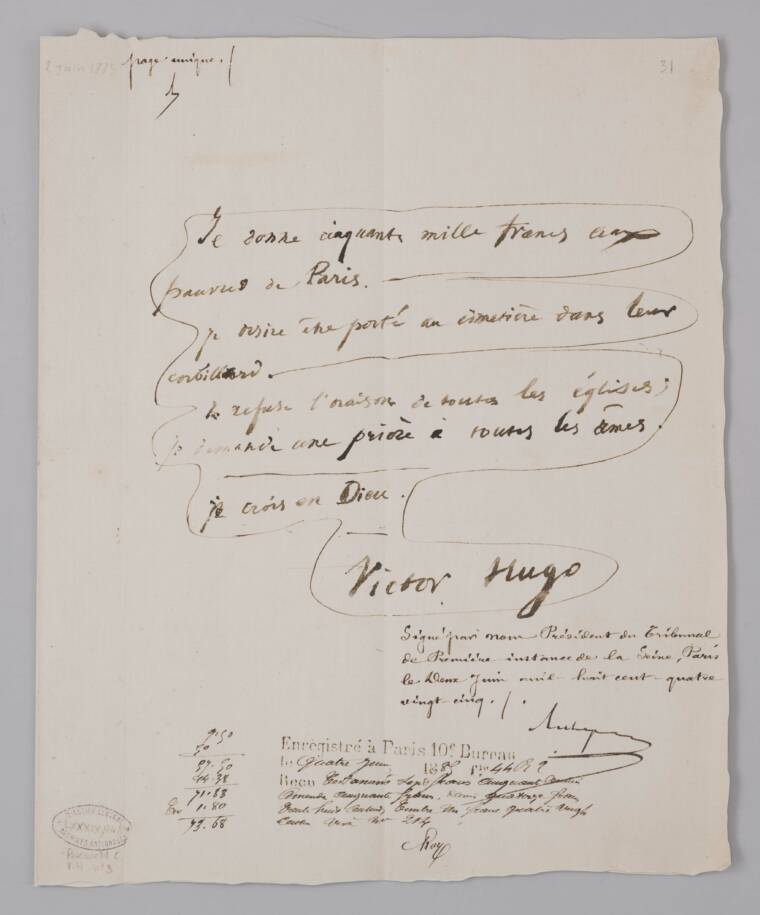 2 Juin 1885
page unique. /.
31
Je donne cinquante mille francs aux
pauvres de Paris.
je désire être porté au cimetière dans leur
corbillard.
Je refuse l'oraison de toutes les églises;
je demande une prière à toutes les âmes.
je crois en Dieu.
Victor Hugo
Signé par nous Président du Tribunal
de Première instance de la Seine, Paris
le deux Juin mil huit cent quatre
vingt cinq. /.
Enregistré à Paris 10e Bureau
le quatre Juin 1885
Reçu Testament sept francs cinquante
71.88
1.80
73.68